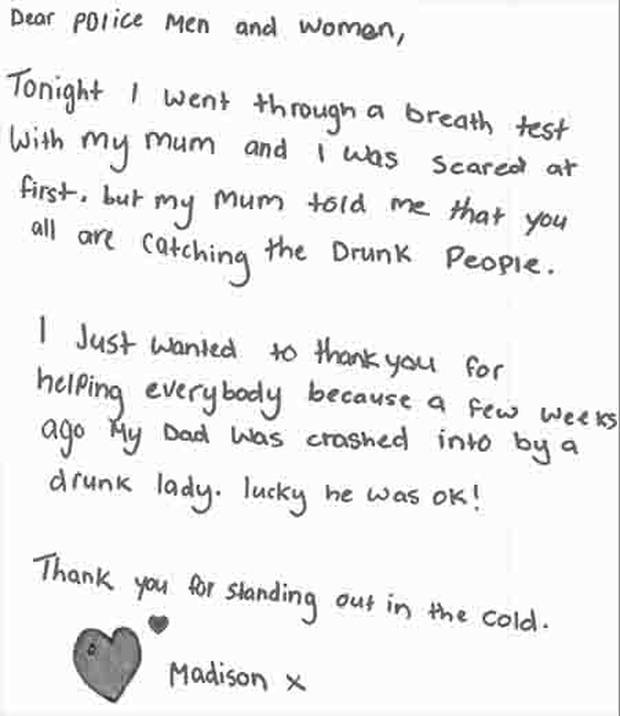 Dear police Men and women,
Tonight I went through a breath test
With my mum and I was scared at
first. but my mum told me that you
all are catching the Drunk People.
I Just wanted to thank you for
helping everybody because a few weeks
ago My Dad was crashed into by a
drunk lady. lucky he was ok!
Thank you for standing out in the cold.
Madison x